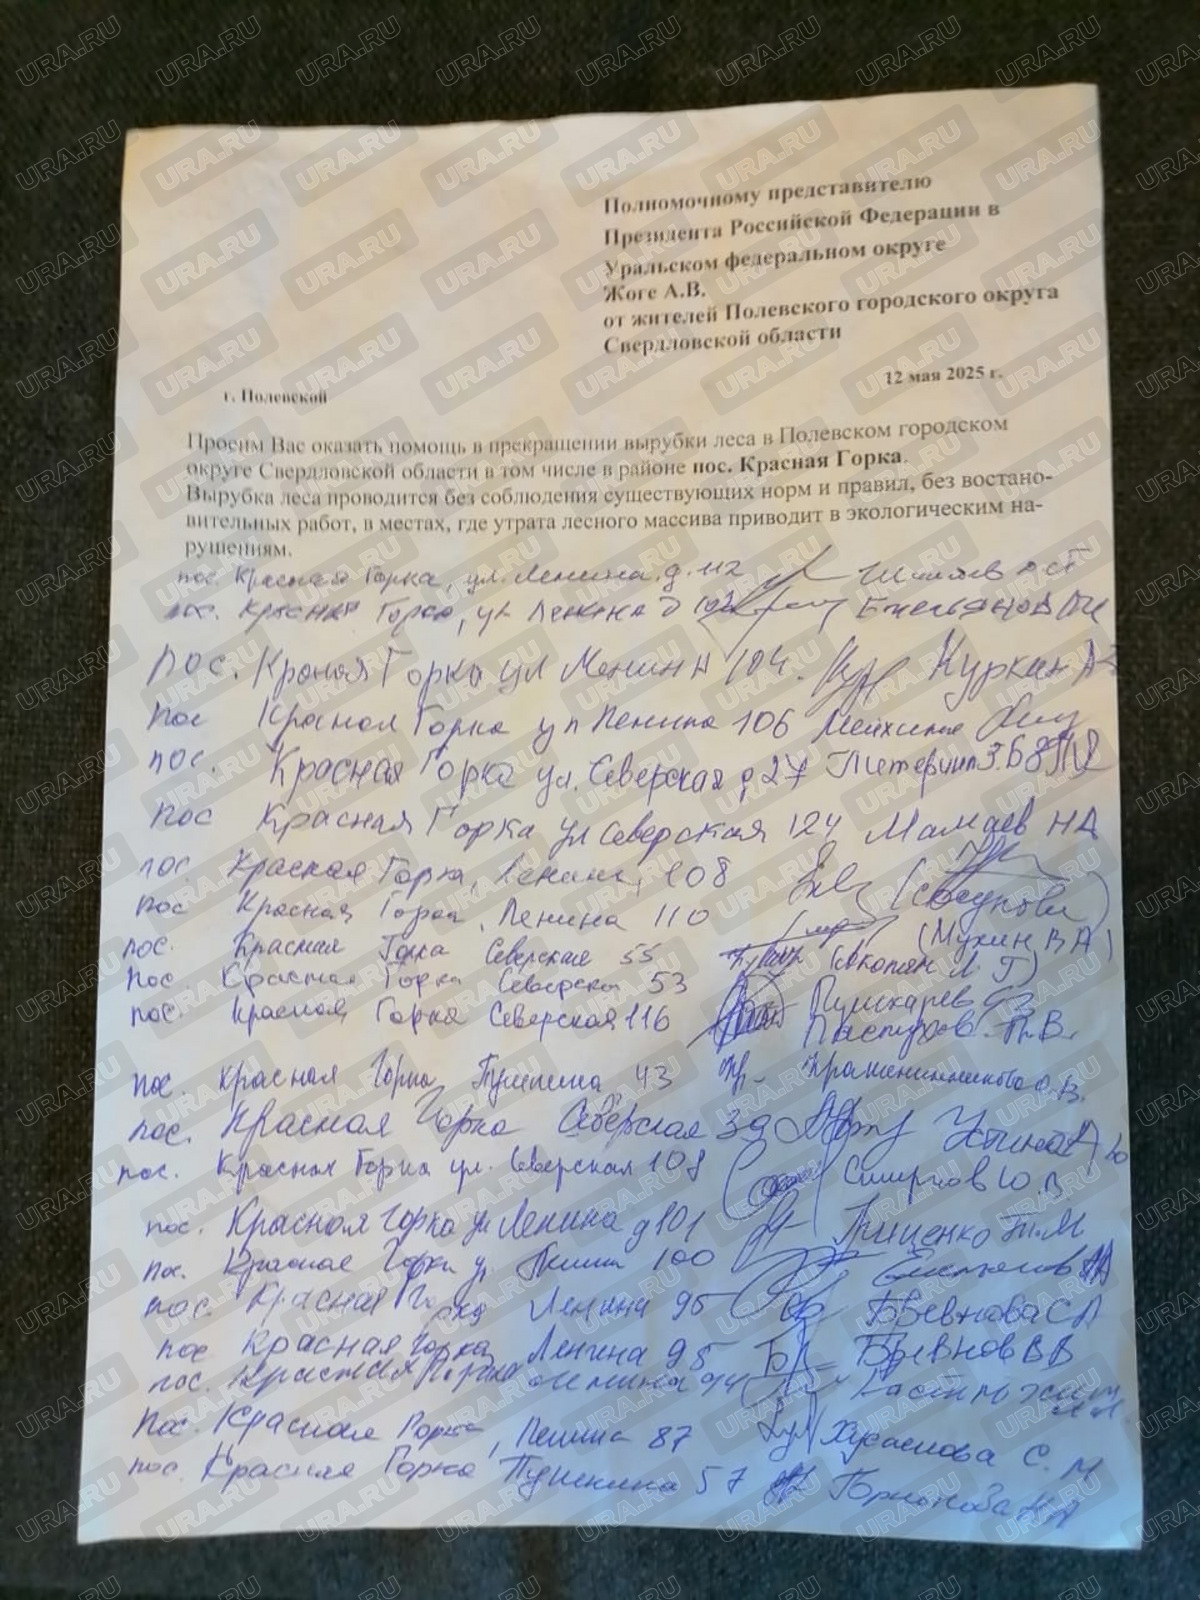 Полномочному представителю
Президента Российской Федерации в
Уральском федеральном округе
Жоге А.В.
от жителей Полевского городского округа
Свердловской области
12 мая 2025 г.
г. Полевской
Просим Вас оказать помощь в прекращении вырубки леса в Полевском городском
округе Свердловской области в том числе в районе пос. Красная Горка.
Вырубка леса проводится без соблюдения существующих норм и правил, без востано-
вительных работ, в местах, где утрата лесного массива приводит в экологическим на-
рушениям.
пос. Красная Горка, ул. Ленина д. 112
пос. Красная Горка, ул Ленина д 102
пос. Красная Горка ул Ленина 104. Куркин А
пос Красная Горка ул Ленина 106
пос. Красная Горка ул. Северская д 27
пос Красная Горка ул Северская 124 Мамаев НА
пос. Красная Горка, Ленина, 108
пос Красная Горка, Ленина 110 (Мухин В А)
пос. Красная Горка Северская 55 (Акопян Л Г)
пос. Красная Горка Северская 53 Пушкарев
пос. Красная Горка Северская 116 Пастухов П.В.
пос. Красная Горка Пушкина 43
пос. Красная Горка Северская 39
пос. Красная Горка ул. Северская 108 Смирнов Ю.В
пос. Красная Горка ул Ленина д 101 Гриценко Т.М
пос. Красная Горка ул 100
пос. Красная Горка Ленина 95 Бревнова С А
пос Красная Горка Ленина 95 Бревнов В В
пос. Красная Горка Ленина 94
Пос. Красная Горка, Ленина 87 Хусаинова С. М
пос. Красная Горка Пушкина 57
URA.RU